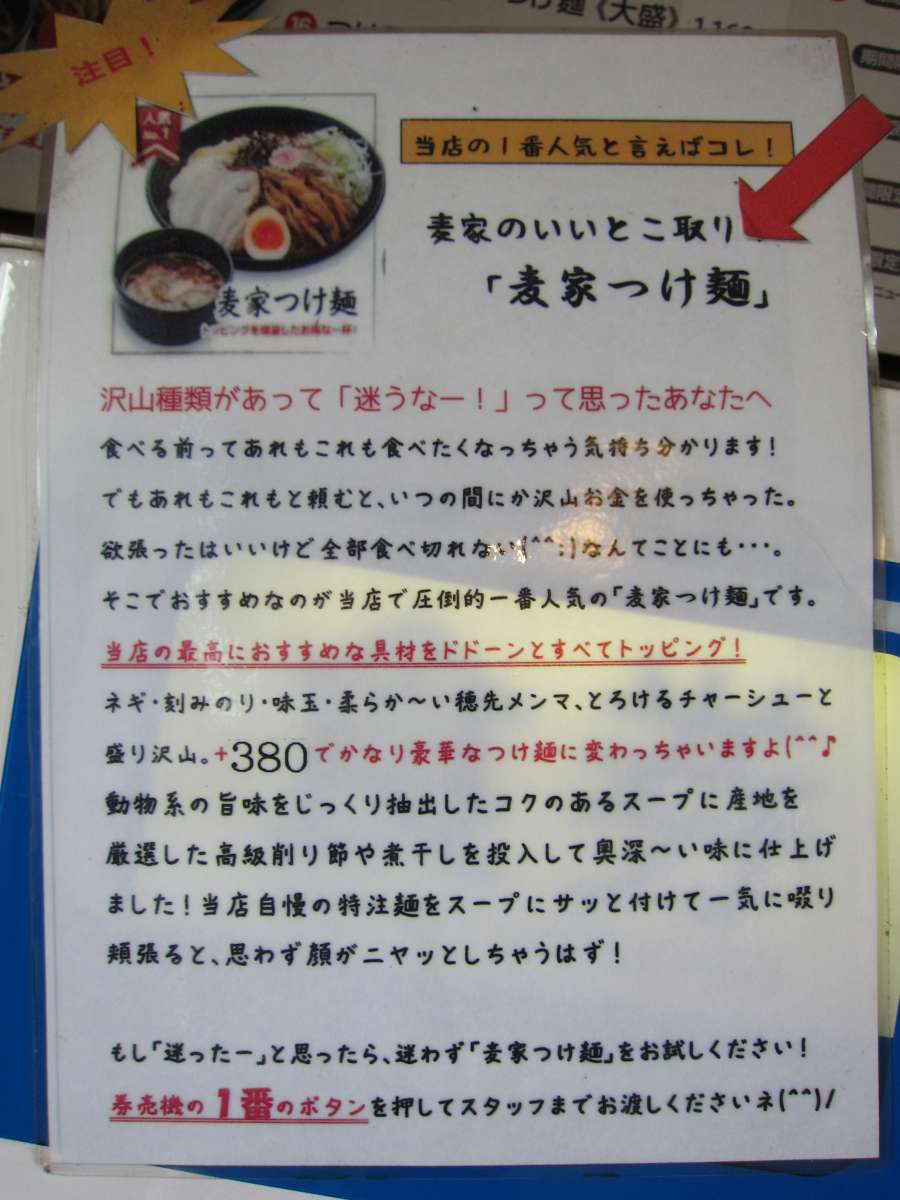 つけ麺《大盛》
注目！
人気
No.1
当店の１番人気と言えばコレ！
麦家のいいとこ取り
「麦家つけ麺」
麦家つけ麺
トッピングを増量したお得な一杯!
沢山種類があって「迷うなー！」って思ったあなたへ
食べる前ってあれもこれも食べたくなっちゃう気持ち分かります！
でもあれもこれもと頼むと、いつの間にか沢山お金を使っちゃった。
欲張ったはいいけど全部食べ切れない(^^;)なんてことにも･･･。
そこでおすすめなのが当店で圧倒的一番人気の「麦家つけ麺」です。
当店の最高におすすめな具材をドドーンとすべてトッピング！
ネギ・刻みのり・味玉・柔らか～い穂先メンマ、とろけるチャーシューと
盛り沢山。+380でかなり豪華なつけ麺に変わっちゃいますよ(^^♪
動物系の旨味をじっくり抽出したコクのあるスープに産地を
厳選した高級削り節や煮干しを投入して奥深～い味に仕上げ
ました！当店自慢の特注麺をスープにサッと付けて一気に啜り
頬張ると、思わず顔がニヤッとしちゃうはず！
もし「迷ったー」と思ったら、迷わず「麦家つけ麺」をお試しください！
券売機の１番のボタンを押してスタッフまでお渡しくださいネ(^^)/